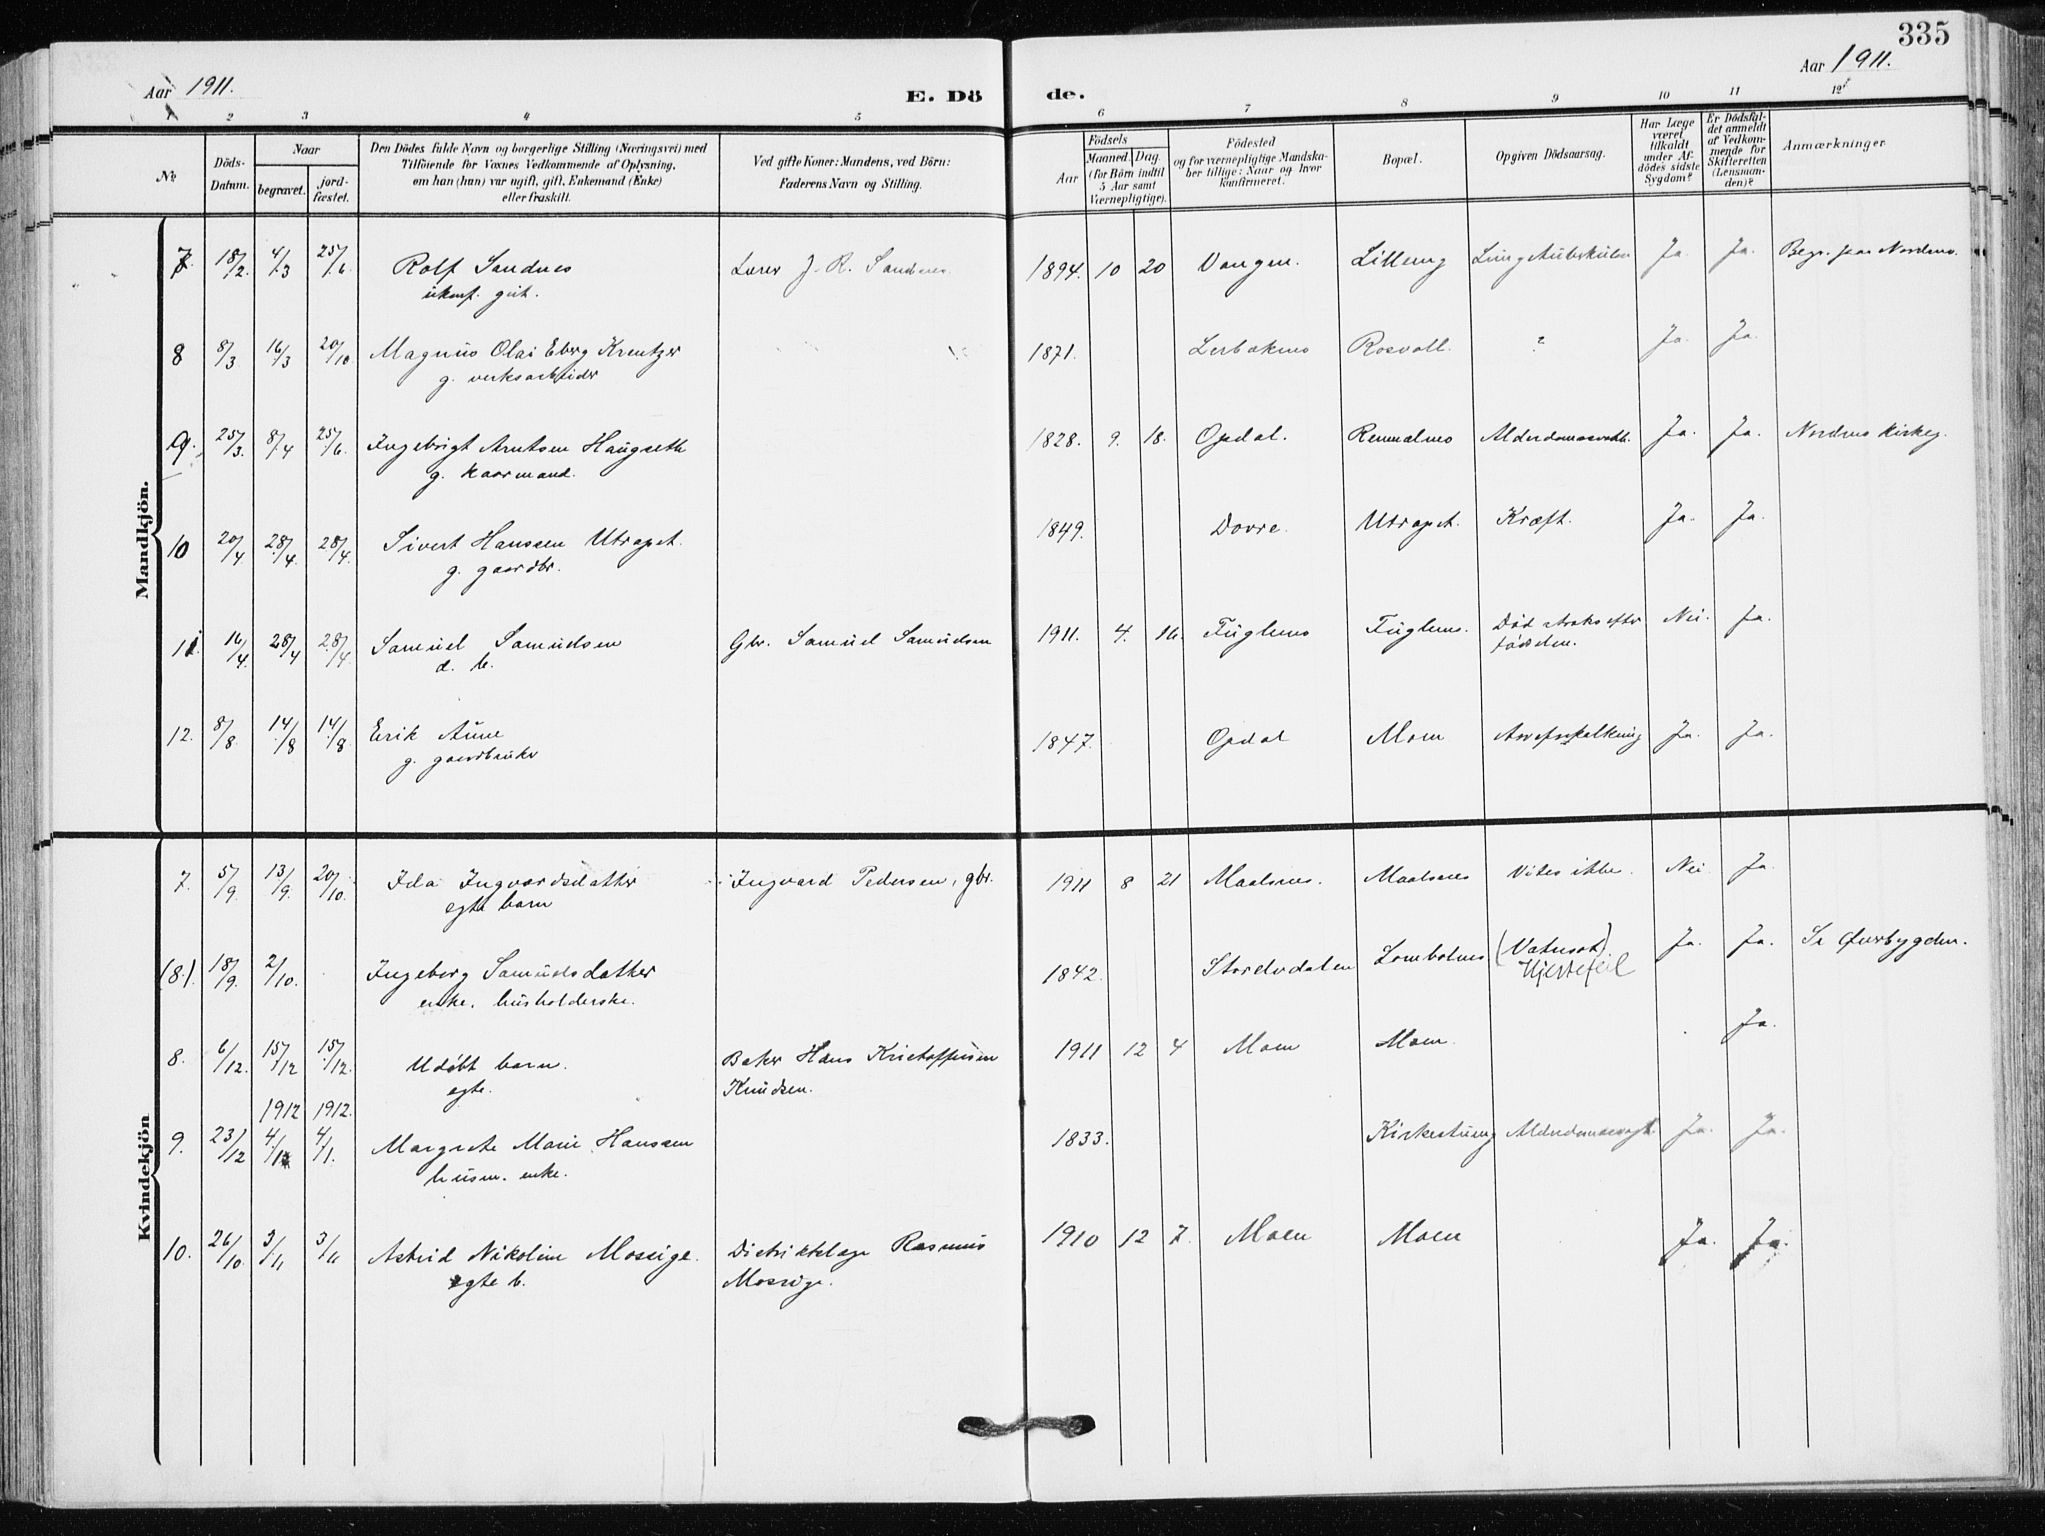 335
Aar 1911.
E. Dö
de.
Aar 1911.
1 2 3 4 5 6 7 8 9 10 11 12
No.
Döds-
Datum.
Naar
begravet.
jord-
fæstet.
Den Dödes fulde Navn og borgerlige Stilling (Næringsvei) med
Tilföiende for Voxnes Vedkommende af Oplysning,
om han (hun) var ugift, gift, Enkemand (Enke)
eller fraskilt.
Ved gifte Koner: Mandens, ved Börn:
Faderens Navn og Stilling.
Födsels
Aar
Maaned. Dag.
(for Börn indtil
5 Aar samt
Værnepligtige).
Födested
og for værnepligtige Mandska-
ber tillige: Naar og hvor
konfirmeret.
Bopæl.
Opgiven Dödsaarsag.
Har Læge
været
tilkaldt
under Af-
dödes sidste
Sygdom?
Er Dödsfal-
det anmeldt
af Vedkom-
mende for
Skifteretten
(Lensman-
den)?
Anmærkninger.
Mandkjön.
7. 18/2. 4/3 25/6 Rolf Sandnes Lærer J. R. Sandnes. 1894. 10 20 Vangen. Lilleng Ja Ja. Begr. paa Nordmo.
ukonf. gut.
8 8/3. 16/3 20/10 Magnus Olai Eberg Kreutzer 1871. Lerbakmo Rosvoll. ? Ja. Ja.
g. verksarbeider
9. 25/3. 8/4 25/6. Ingebrigt Arntsen Haugseth 1828. 9. 18. Opdal. Remmalmo Ja. Ja. Nordmo kirkeg.
g. kaarmand.
10 20/4 28/4. 28/4. Sivert Hanssen Utrapet. 1849. Dovre. Utrapet. Kræft. Ja. Ja.
g. gaardbr.
11. 16/4. 28/4 28/4 Samuel Samuelsen Gbr. Samuel Samuelsen 1911. 4. 16. Fuglemo Fuglemo. Død straks efter Nei Ja.
d. b. fødselen.
12. 8/8. 14/8 14/8 Erik Aune 1847. Opdal Moen Aareforkalkning Ja. Ja.
g. gaardbruker
Kvindekjön
7. 5/9. 13/9. 20/10. Ida Ingvardsdatter Ingvard Pedersen, gbr. 1911 8 21 Maalsnes. Maalsnes Vites ikke. Nei. Ja.
egte barn
(8.) 18/9. 2/10. Ingeborg Samuelsdatter 1842. Storelvdalen (Vatersot) Ja. Ja. Se Øverbygden.
enke. husholderske. Hjertefeil
8. 6/12. 15/12 15/12. Udøbt barn. Baker Hans Kristoffersen 1911 12 4 Moen Moen. Ja.
egte. Knudsen.
1912 1912.
9. 23/12 4/1 4/1. Margrete Marie Hanssen 1833. Kirkestung Ja. Ja.
husm. enke.
10. 26/10. 3/11 3/11 Astrid Nikoline Mossige. Distriktslæge Rasmus 1910 12 7. Moen Moen Ja. Ja.
egte b. Mossige.